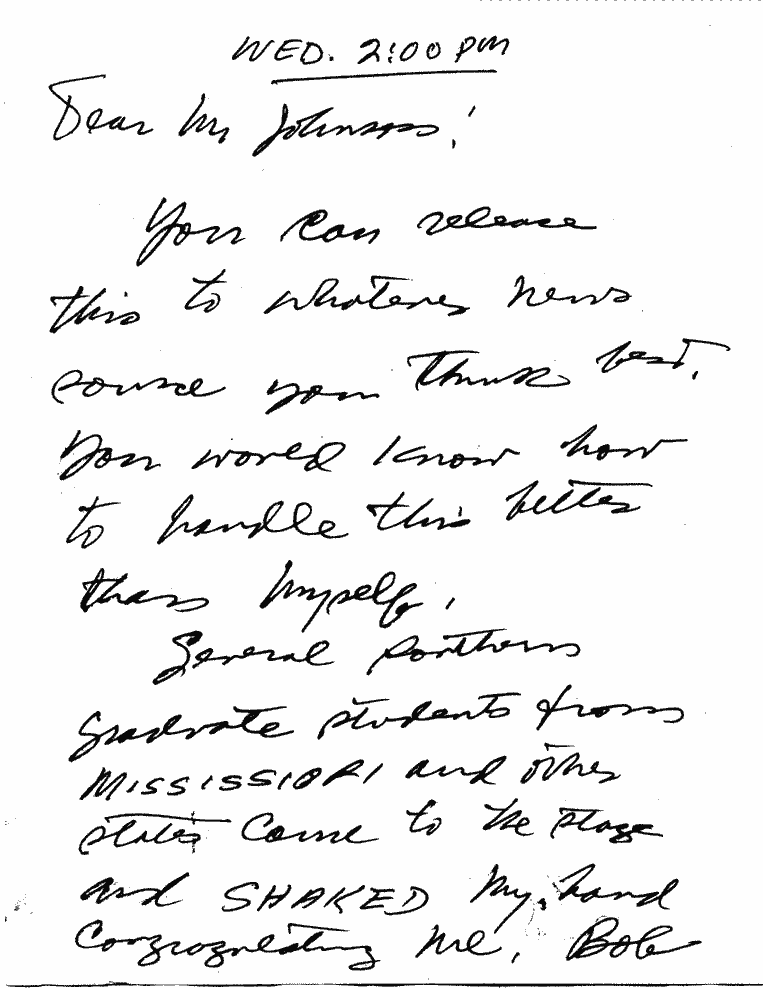 WED. 2:00 PM
Dear Mr Johnson!
You can release
this to whatever news
source you think best.
You would know how
to handle this better
than myself.
Several southern
graduate students from
MISSISSIPPI and other
states come to the stage
and SHAKED my hand
congragulating me, Bob